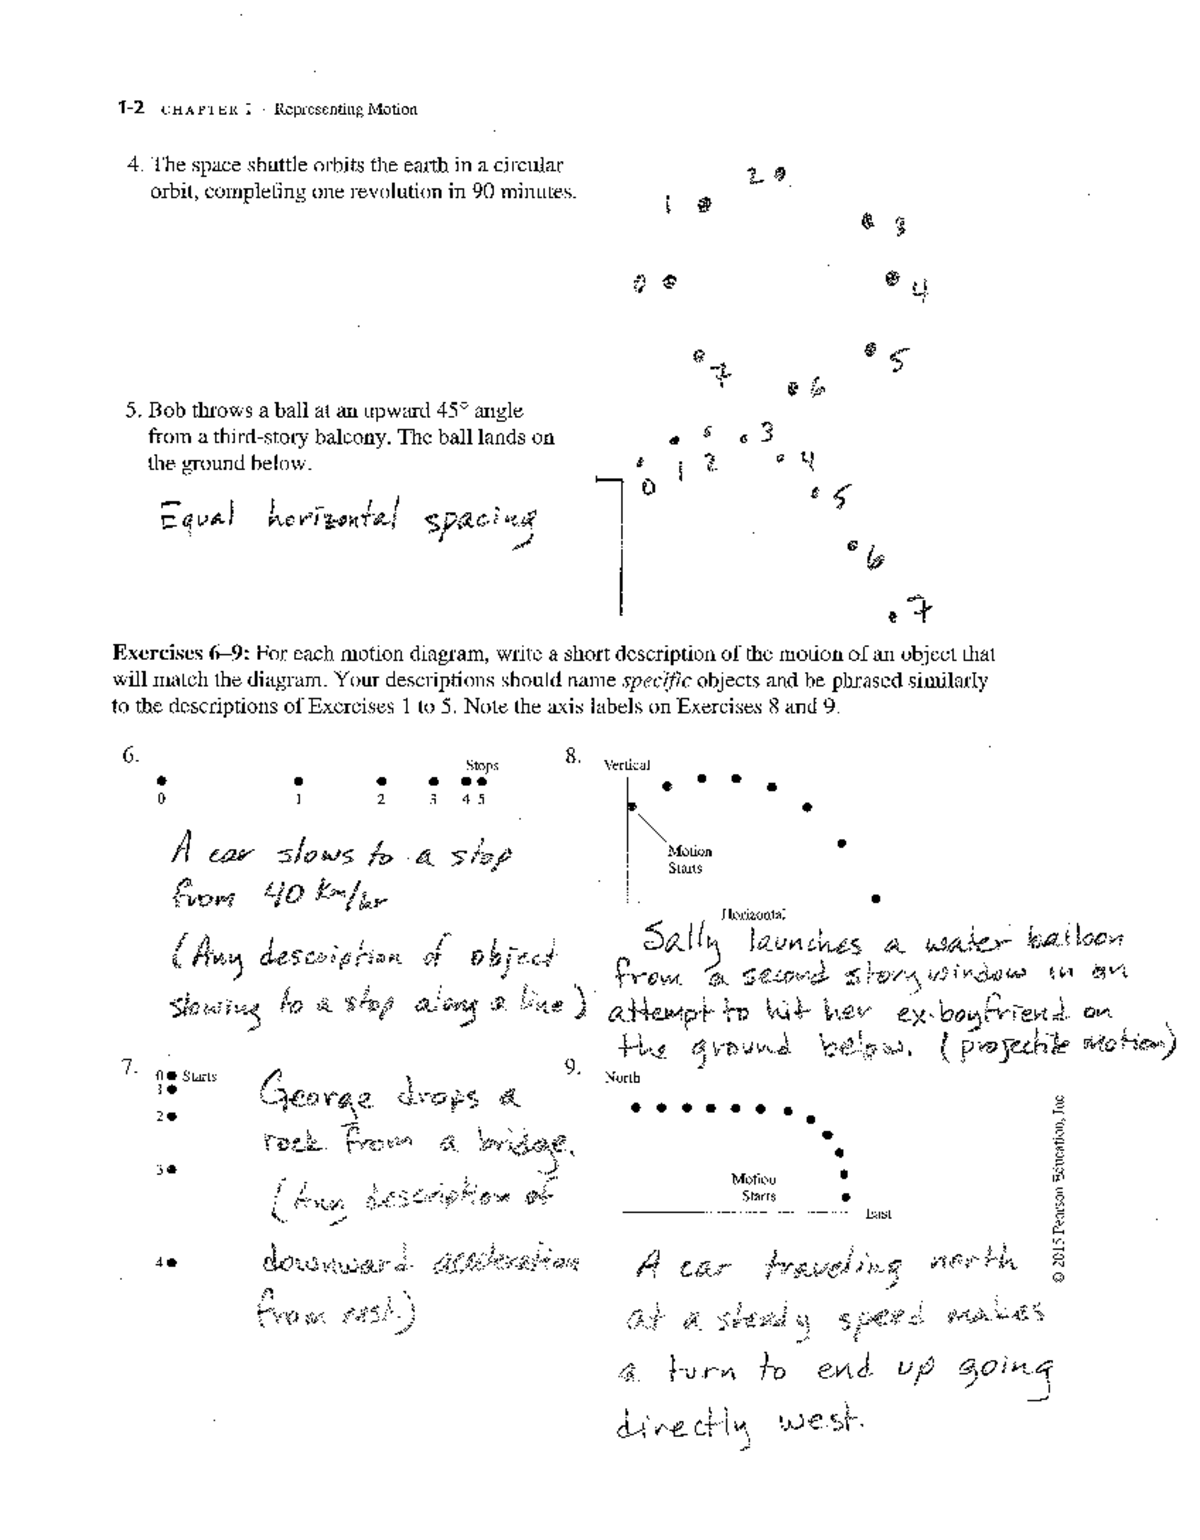 1-2 CHAPTER 1 · Representing Motion
4. The space shuttle orbits the earth in a circular
orbit, completing one revolution in 90 minutes.
2
1
3
0
4
5
7
6
5. Bob throws a ball at an upward 45° angle
from a third-story balcony. The ball lands on
the ground below.
3
1 2 4
0
5
6
7
Equal horizontal spacing
Exercises 6–9: For each motion diagram, write a short description of the motion of an object that
will match the diagram. Your descriptions should name specific objects and be phrased similarly
to the descriptions of Exercises 1 to 5. Note the axis labels on Exercises 8 and 9.
6.
Stops
0 1 2 3 4 5
A car slows to a stop
from 40 Km/hr
(Any description of object
slowing to a stop along a line)
8. Vertical
Motion
Starts
Horizontal
Sally launches a water balloon
from a second story window in an
attempt to hit her ex-boyfriend on
the ground below. (projectile motion)
7.
0 Starts
1
2
3
4
George drops a
rock from a bridge.
(Any description of
downward acceleration
from rest.)
9.
North
Motion
Starts
East
A car traveling north
at a steady speed makes
a turn to end up going
directly west.
© 2015 Pearson Education, Inc